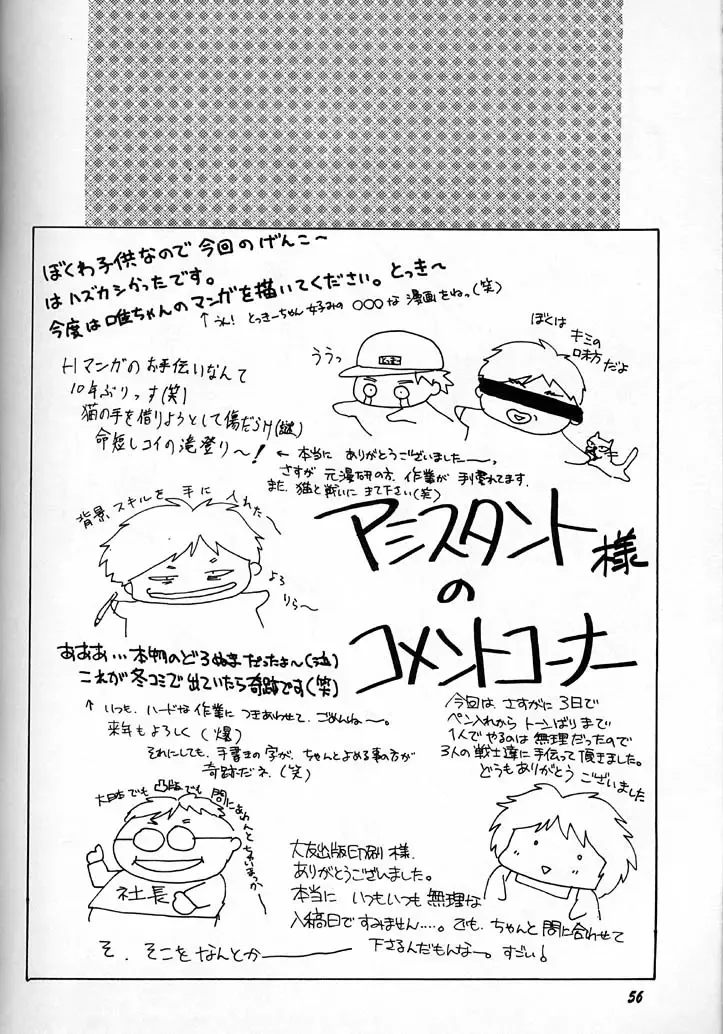 ぼくわ子供なので今回のげんこ〜
はハズカシかったです。
今度は唯ちゃんのマンガを描いてください。とっき〜
↑うん! とっきーちゃん好みの ○○○な 漫画をねっ(笑)
ううっ
ぼくは
キミの
味方だよ
Hマンガのお手伝いなんて
10年ぶりっす(笑)
猫の手を借りようとして傷だらけ(謎)
命短しコイの滝登り〜!
← 本当に ありがとうございましたーっ。
さすが 元漫研の方、作業が 手慣れてます。
また、猫と戦いに きて下さい(笑)
背景スキルを 手に 入れた〜
よろ
りら〜
アシスタント様
の
コメントコーナー
あああ…本物のどろぬまだったよ〜(泣)
これが冬コミで出ていたら奇跡です(笑)
↑ いつも、ハードな作業に つきあわせて、ごめんね〜。
来年もよろしく(爆)
それにしても、手書きの字が、ちゃんとよめる事の方が
奇跡だネ(笑)
今回は、さすがに 3日で
ペン入れから トーンばりまで
1人でやるのは 無理だったので
3人の戦士達に手伝って頂きました。
どうもありがとう ございました
大日本でも 凸版でも 間にあわんとちゃいまっか〜
社長
大友出版印刷 様。
ありがとうございました。
本当に いつもいつも 無理な
入稿日ですみません……。でも、ちゃんと間に合わせて
下さるんだもんなー。すごい!
そ、そこをなんとか――
56